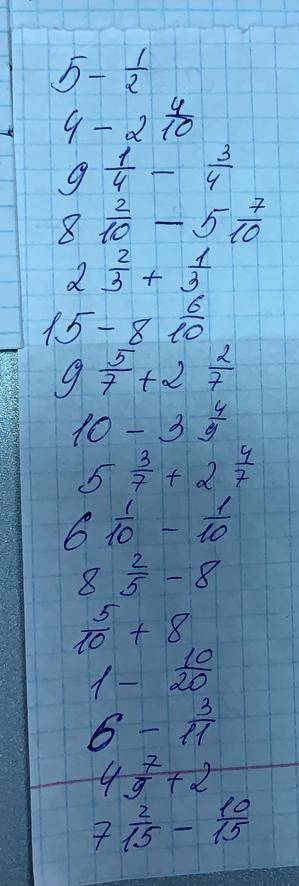 5 - 1/2
4 - 2 4/10
9 1/4 - 3/4
8 2/10 - 5 7/10
2 2/3 + 1/3
15 - 8 6/10
9 5/7 + 2 2/7
10 - 3 4/9
5 3/7 + 2 4/7
6 1/10 - 1/10
8 2/5 - 8
5/10 + 8
1 - 10/20
6 - 3/11
4 7/9 + 2
7 2/15 - 10/15